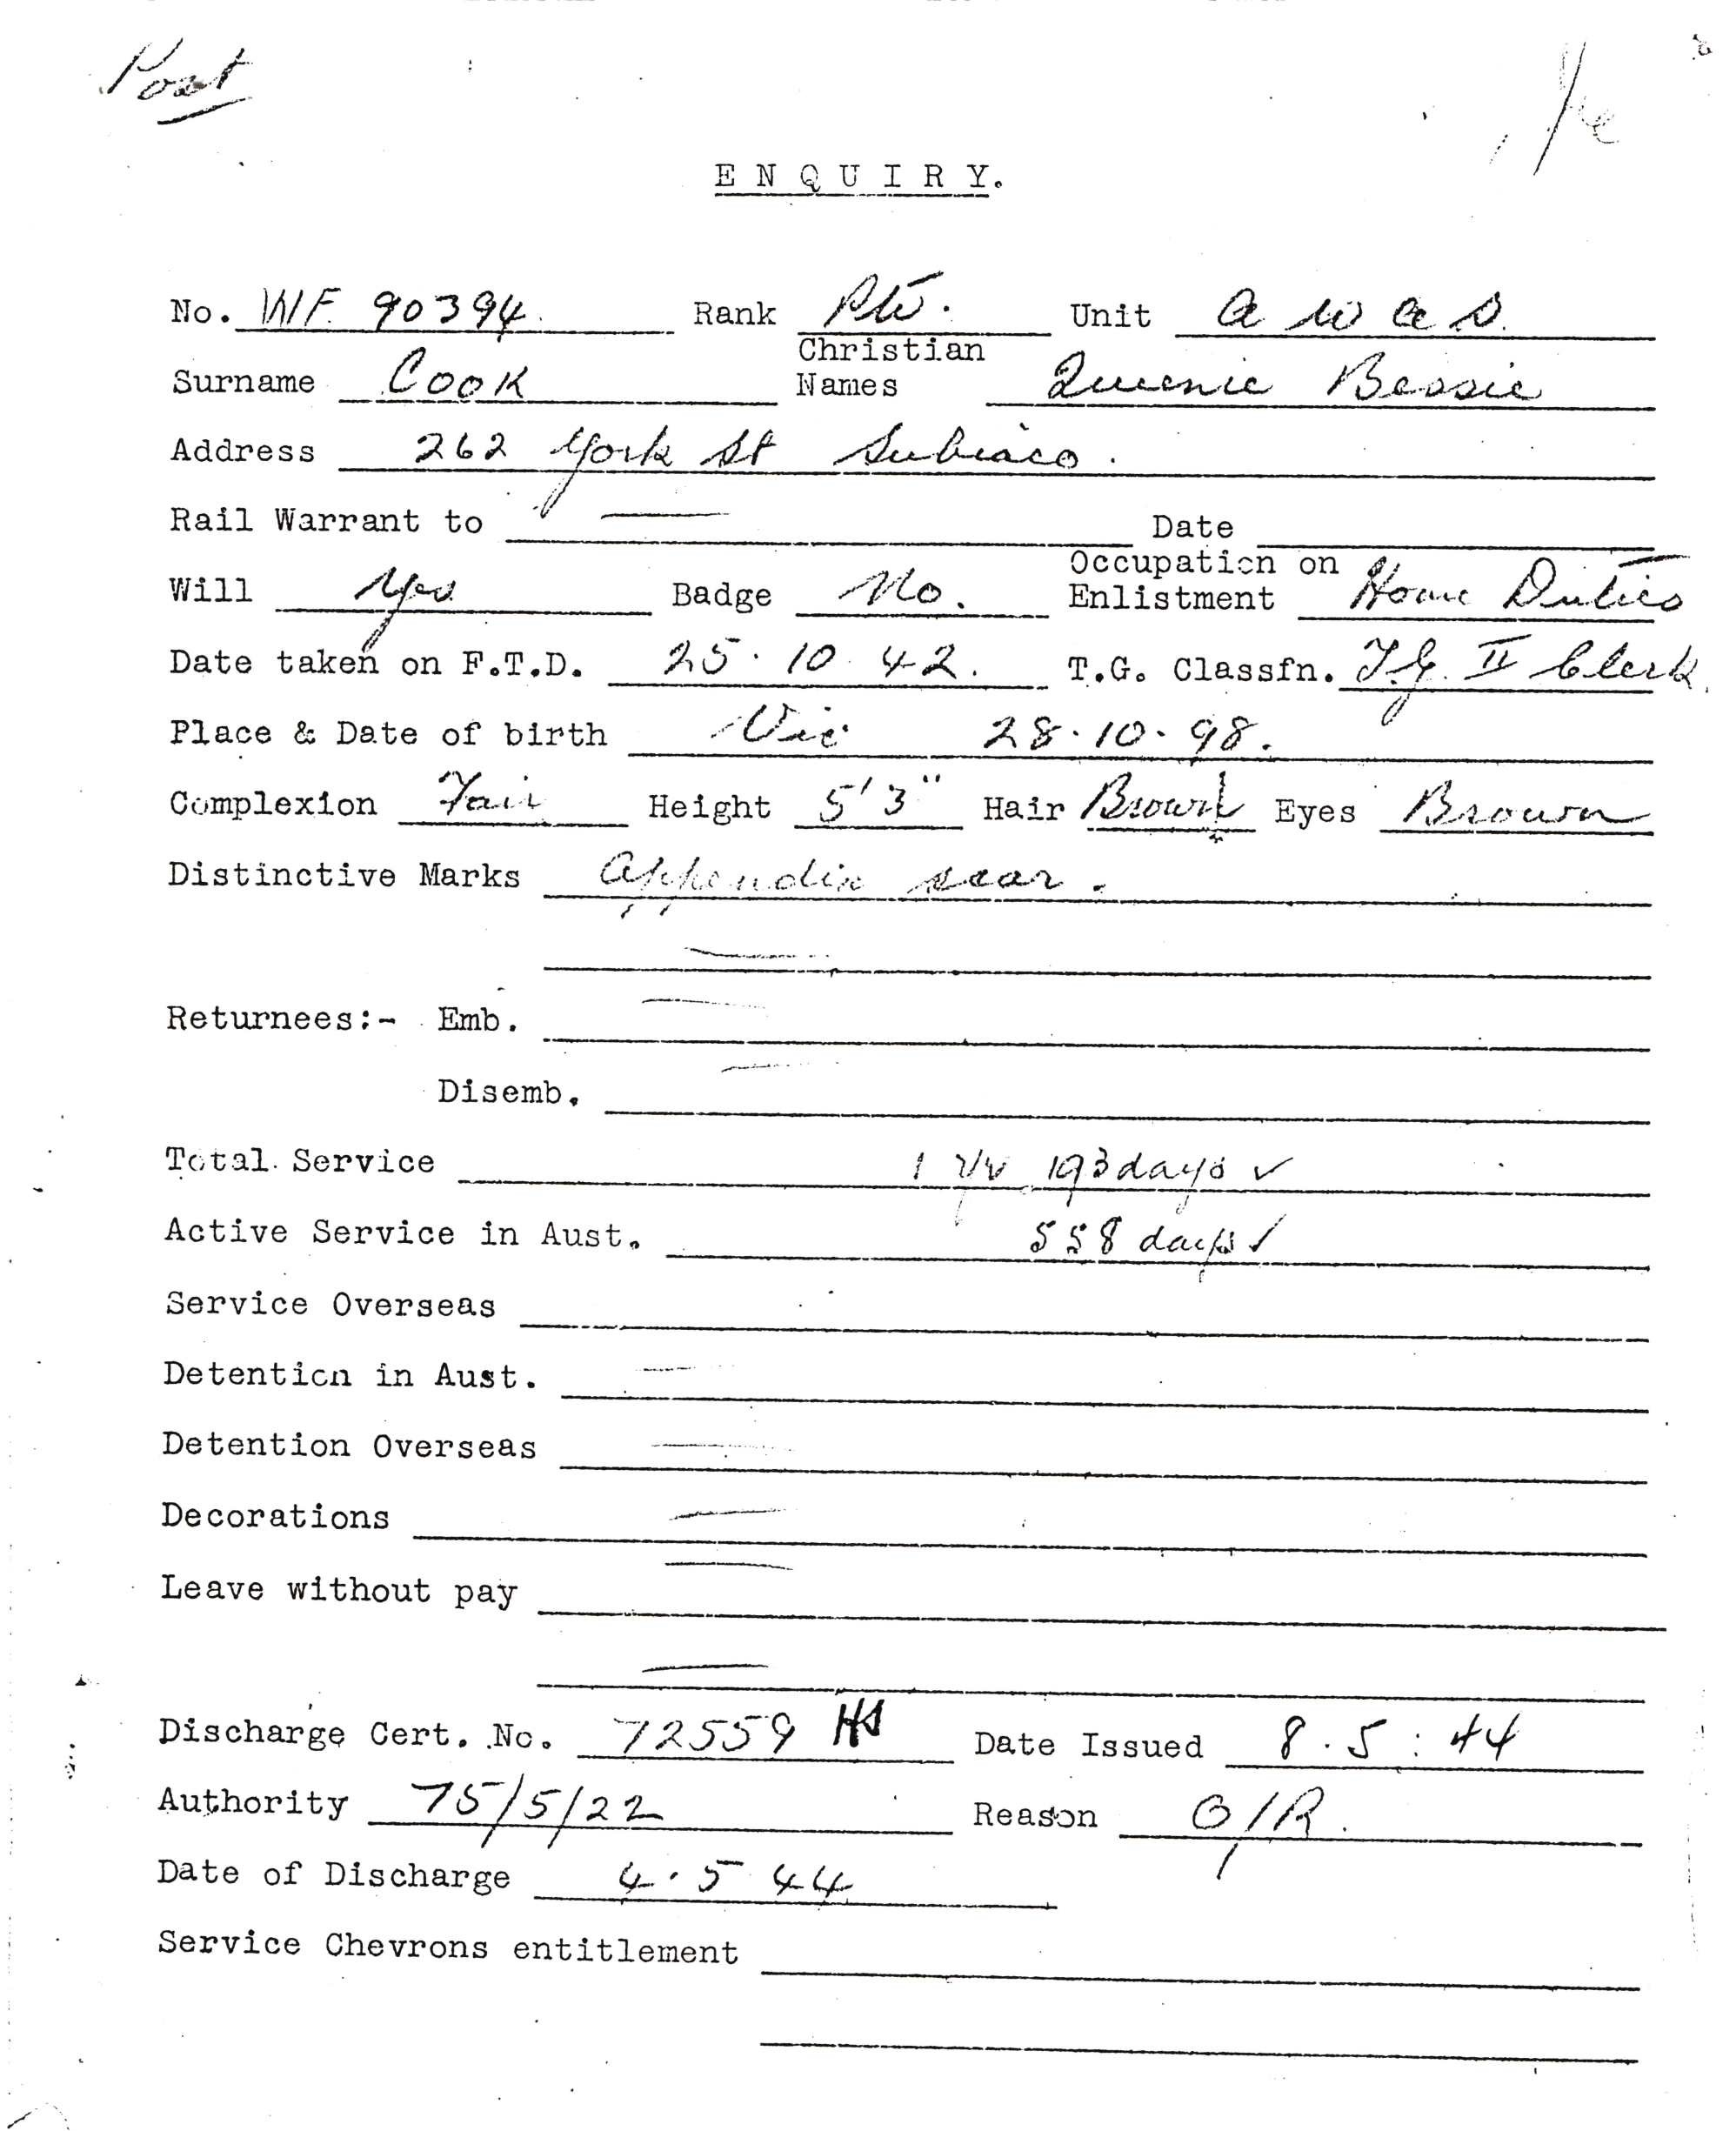 Post
ENQUIRY.
No. WF 90394. Rank Pte. Unit A W A S.
Surname Cook Christian Names Queenie Bessie
Address 262 York St Subiaco.
Rail Warrant to — Date
Will Yes Badge No. Occupation on Enlistment Home Duties
Date taken on F.T.D. 25.10.42. T.G. Classfn. T.G. II Clerk.
Place & Date of birth Vic 28.10.98.
Complexion Fair Height 5'3" Hair Brown Eyes Brown
Distinctive Marks Appendix scar.
—
Returnees:- Emb. —
Disemb. —
Total Service 1 yr 193 days ✓
Active Service in Aust. 558 days ✓
Service Overseas
Detention in Aust. —
Detention Overseas —
Decorations —
Leave without pay —
—
Discharge Cert. No. 72559 Date Issued 8.5.44
Authority 75/5/22 Reason O/R.
Date of Discharge 4.5.44
Service Chevrons entitlement